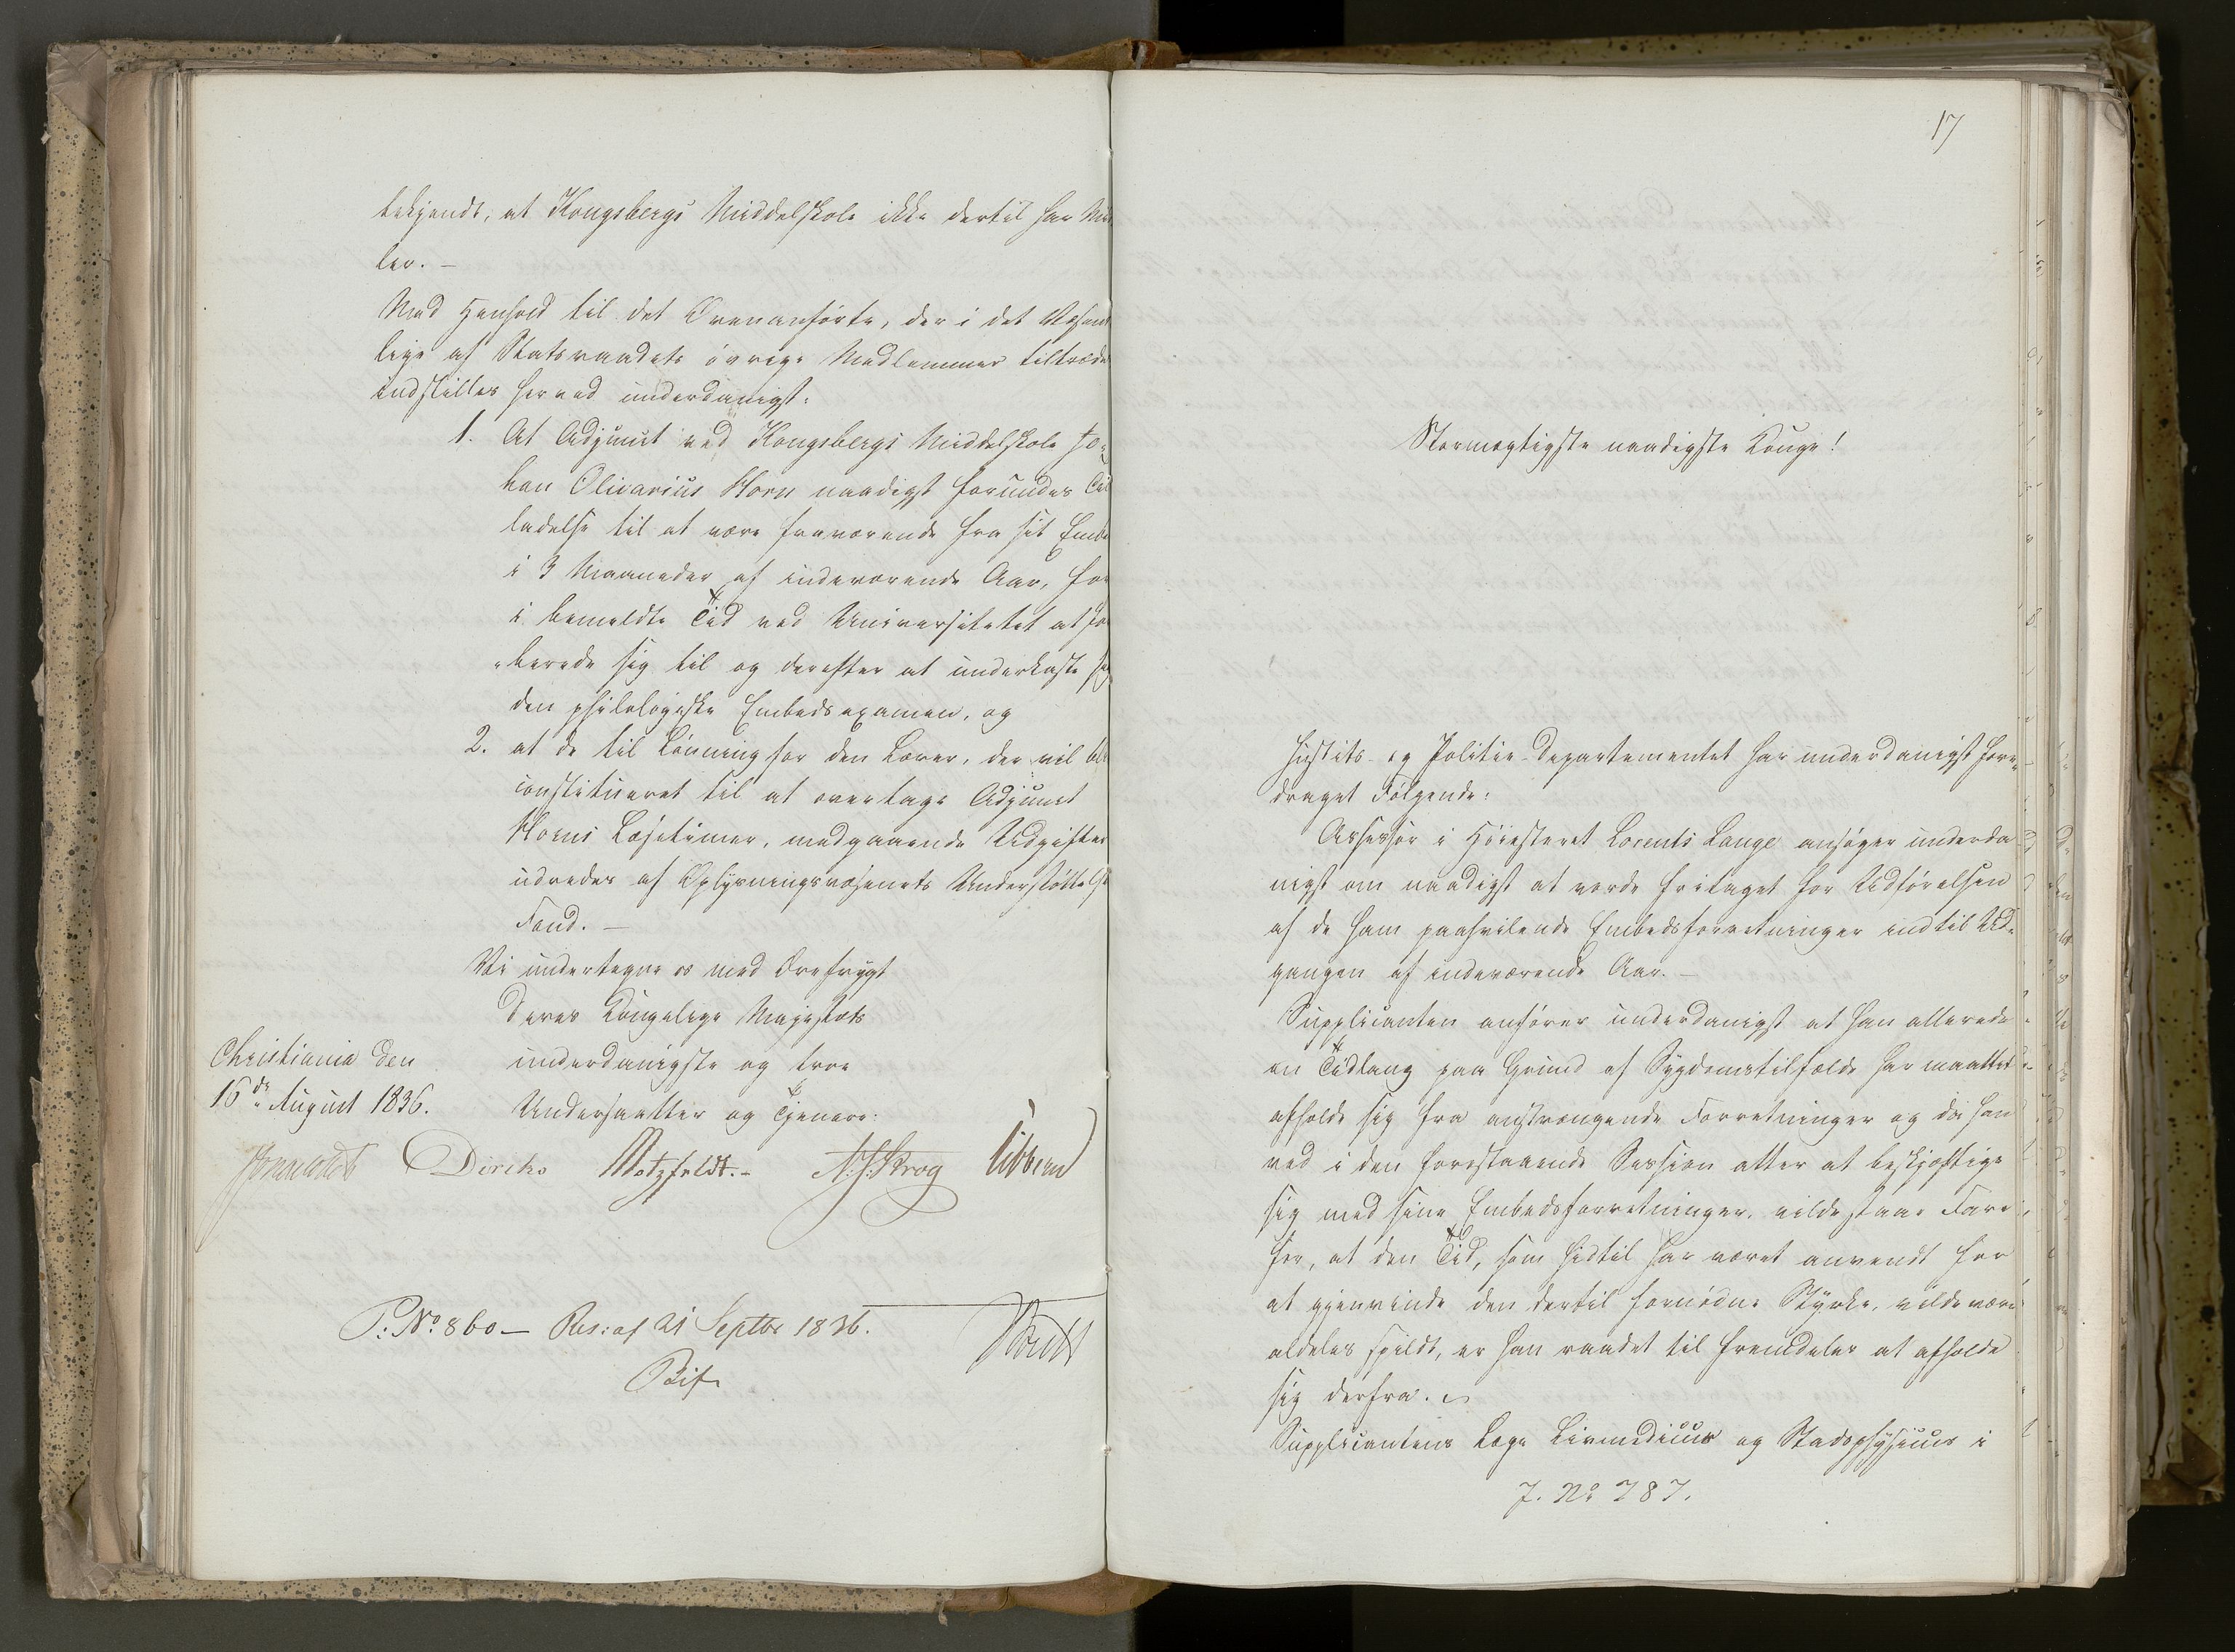 bekjendt, at Kongsbergs Middelskole ikke dertil har Mid
ler. –
Med Henhold til det Ovenanførte, der i det Væsent
lige af Statsraadets øvrige Medlemmer tiltrædes
indstilles herved underdanigst:
1. At Adjunct ved Kongsbergs Middelskole Jo-
han Olivarius Horn naadigst forundes Til
ladelse til at være fraværende fra sit Embe
i 3 Maaneder af indeværende Aar, for
i bemeldte Tid ved Universitetet at for
berede sig til og derefter at underkaste sig
den philologiske Embedsexamen, og
2. at de til Lønning for den Lærer, der vil bli
constitueret til at overtage Adjunct
Horns Læsetimer, medgaaende Udgifter
udredes af Oplysningsvæsenets Understøttelse
Fond. –
Vi undertegne os med Ærefrygt
Deres Kongelige Majestæts
underdanigste og troe
Undersaatter og Tjenere:
Christiania den
16de August 1836.
Diriks Motzfeldt. – N.J. Krog Vibbern
P: No 860 – Res: af 21 Septbr 1836.
17
Stormægtigste naadigste Konge!
Justits- og Politie-Departementet har underdanigst fore-
draget Følgende:
Assessor i Høiesteret Lorents Lange ansøger underda
nigst om naadigst at vorde fritaget for Udførelsen
af de ham paahvilende Embedsforretninger indtil Ud-
gangen af indeværende Aar. –
Supplicanten anfører underdanigst at han allerede
en Tidlang paa Grund af Sygdomstilfælde har maattet
afholde sig fra anstrængende Forretninger og da han
ved i den forestaaende Session atter at beskjæftige
sig med sine Embedsforretninger, vilde staae Fare
for, at den Tid, som hidtil har været anvendt for
at gjenvinde den dertil fornødne Styrke, vilde være
aldeles spildt, er han raadet til fremdeles at afholde
sig derfra.
Supplicantens Læge Livmedicus og Stadsphysicus i
J. No 787.